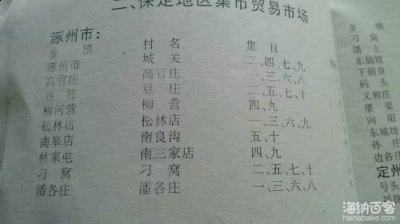 二、保定地区集市贸易市场
涿州市：
乡 镇 村 名 集 日
涿州市 城 关 二、四、七、九
高官庄 高官庄 一、三、六、八
豆 庄 豆 庄 二、五、七、十
柳河营 柳 营 四、九
松林店 松林店 一、三、六、九
南皋店 南良沟 五、十
林家屯 南三家店 四、九
刁 窝 刁 窝 二、五、七、十
潘各庄 潘各庄 一、三、六、八
塔 上
刁 窝
东仙坡
下胡良
码 头
义和庄
里 渠
向 阳
东城坊
孙 庄
边各庄
定州
号头
海纳百客
www.hainabaike.com